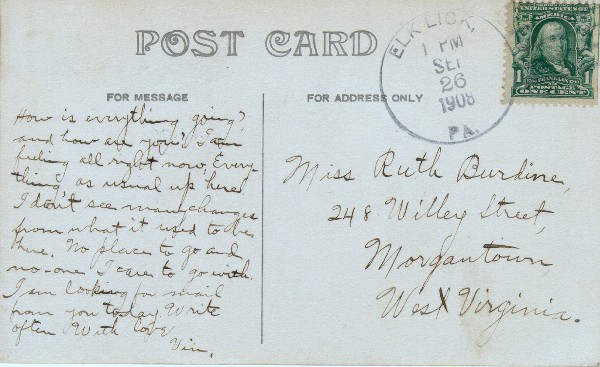 POST CARD
FOR MESSAGE
FOR ADDRESS ONLY
ELK LICK,
1 PM
SEP
26
1908
PA.
UNITED STATES OF
AMERICA
1 1
POSTAGE
ONE CENT
How is everything going?
and how are you? I am
feeling all right now. Every-
thing as usual up here
I don't see many changes
from what it used to be
here. No place to go and
no-one I care to go with.
I am looking for mail
from you today. Write
often With love
Vin.
Miss Ruth Burdine,
248 Willey Street,
Morgantown
West Virginia.